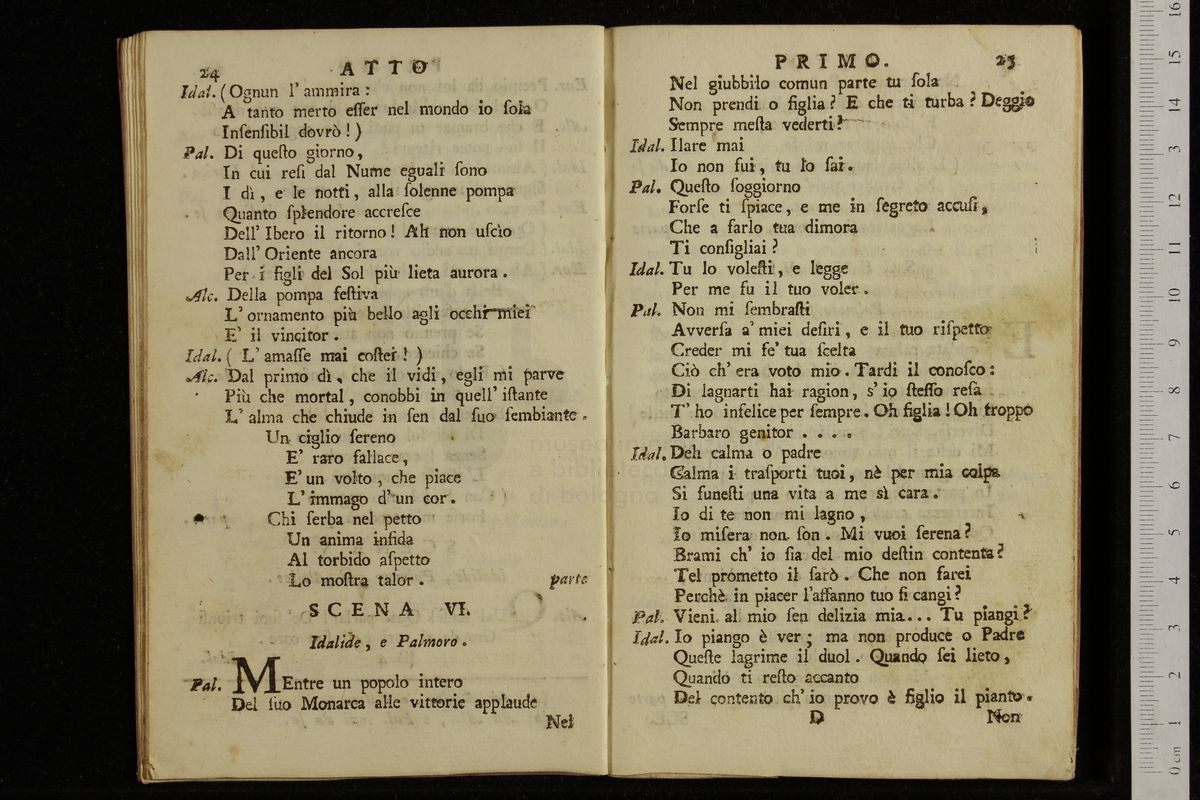 24 ATTO
Idal. (Ognun l' ammira :
A tanto merto eſſer nel mondo io ſola
Inſenſibil dovrò ! )
Pal. Di queſto giorno,
In cui reſi dal Nume eguali ſono
I dì, e le notti, alla ſolenne pompa
Quanto ſplendore accreſce
Dell' Ibero il ritorno! Ah non uſcìo
Dall' Oriente ancora
Per i figli del Sol più lieta aurora.
Alc. Della pompa feſtiva
L' ornamento più bello agli occhi miei
E' il vincitor.
Idal. ( L' amaſſe mai coſtei ! )
Alc. Dal primo dì, che il vidi, egli mi parve
Più che mortal, conobbi in quell' iſtante
L' alma che chiude in ſen dal ſuo ſembiante.
Un ciglio ſereno
E' raro fallace,
E' un volto, che piace
L' immago d' un cor.
Chi ſerba nel petto
Un anima infida
Al torbido aſpetto
Lo moſtra talor. parte
SCENA VI.
Idalide, e Palmoro.
Pal. MEntre un popolo intero
Del ſuo Monarca alle vittorie applaude
Nel
PRIMO. 25
Nel giubbilo comun parte tu ſola
Non prendi o figlia? E che ti turba? Deggio
Sempre meſta vederti?
Idal. Ilare mai
Io non fui, tu lo ſai.
Pal. Queſto ſoggiorno
Forſe ti ſpiace, e me in ſegreto accuſi,
Che a farlo tua dimora
Ti conſigliai ?
Idal. Tu lo voleſti, e legge
Per me fu il tuo voler.
Pal. Non mi ſembraſti
Avverſa a' miei deſiri, e il tuo riſpetto
Creder mi fe' tua ſcelta
Ciò ch' era voto mio. Tardi il conoſco:
Di lagnarti hai ragion, s' io ſteſſo reſà
T' ho infelice per ſempre. Oh figlia! Oh troppo
Barbaro genitor . . . .
Idal. Deh calma o padre
Calma i traſporti tuoi, nè per mia colpa
Si funeſti una vita a me sì cara.
Io di te non mi lagno,
Io miſera non ſon. Mi vuoi ſerena?
Brami ch' io ſia del mio deſtin contenta?
Tel prometto il ſarò. Che non farei
Perchè in piacer l'affanno tuo ſi cangi?
Pal. Vieni al mio ſen delizia mia... Tu piangi?
Idal. Io piango è ver; ma non produce o Padre
Queſte lagrime il duol. Quando ſei lieto,
Quando ti reſto accanto
Del contento ch' io provo è figlio il pianto.
D Non